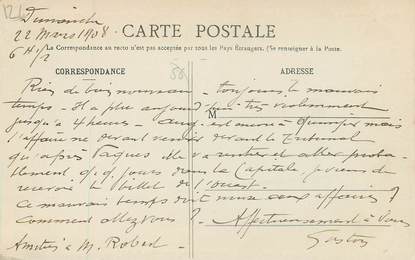 Dimanche
22 Mars 1908
6 H 1/2
CARTE POSTALE
La Correspondance au recto n'est pas acceptée par tous les Pays Étrangers. (Se renseigner à la Poste.
CORRESPONDANCE
ADRESSE
M
Rien de bien nouveau - toujours le mauvais
temps - Il a plu aujourd'hui très violemment
jusqu'à 4 heures - est encore à Quimper mais
l'affaire ne devant venir devant le Tribunal
qu'après Pâques elle va rentrer et aller proba-
blement q.q. jours dans la Capitale, je viens de
recevoir le billet de l'Ouest.
Ce mauvais temps doit nuire aux affaires ?
Comment allez vous ? - Affectueusement à vous
Amitiés à M. Robert
Gaston